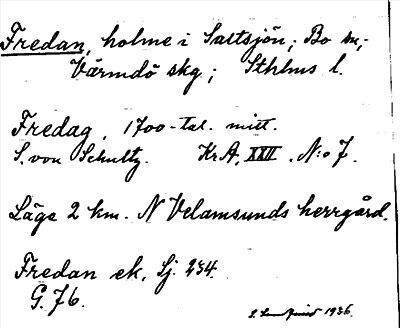 Fredan, holme i Saltsjön; Bo sn,
Värmdö skg; Sthlms l.
Fredag, 1700-tal. mitt.
S. von Schultz. KrA, XXII. N:o 7.
Läge 2 km. N Velamsunds herrgård.
Fredan ek. Sj. 234.
G. 76.
1936.